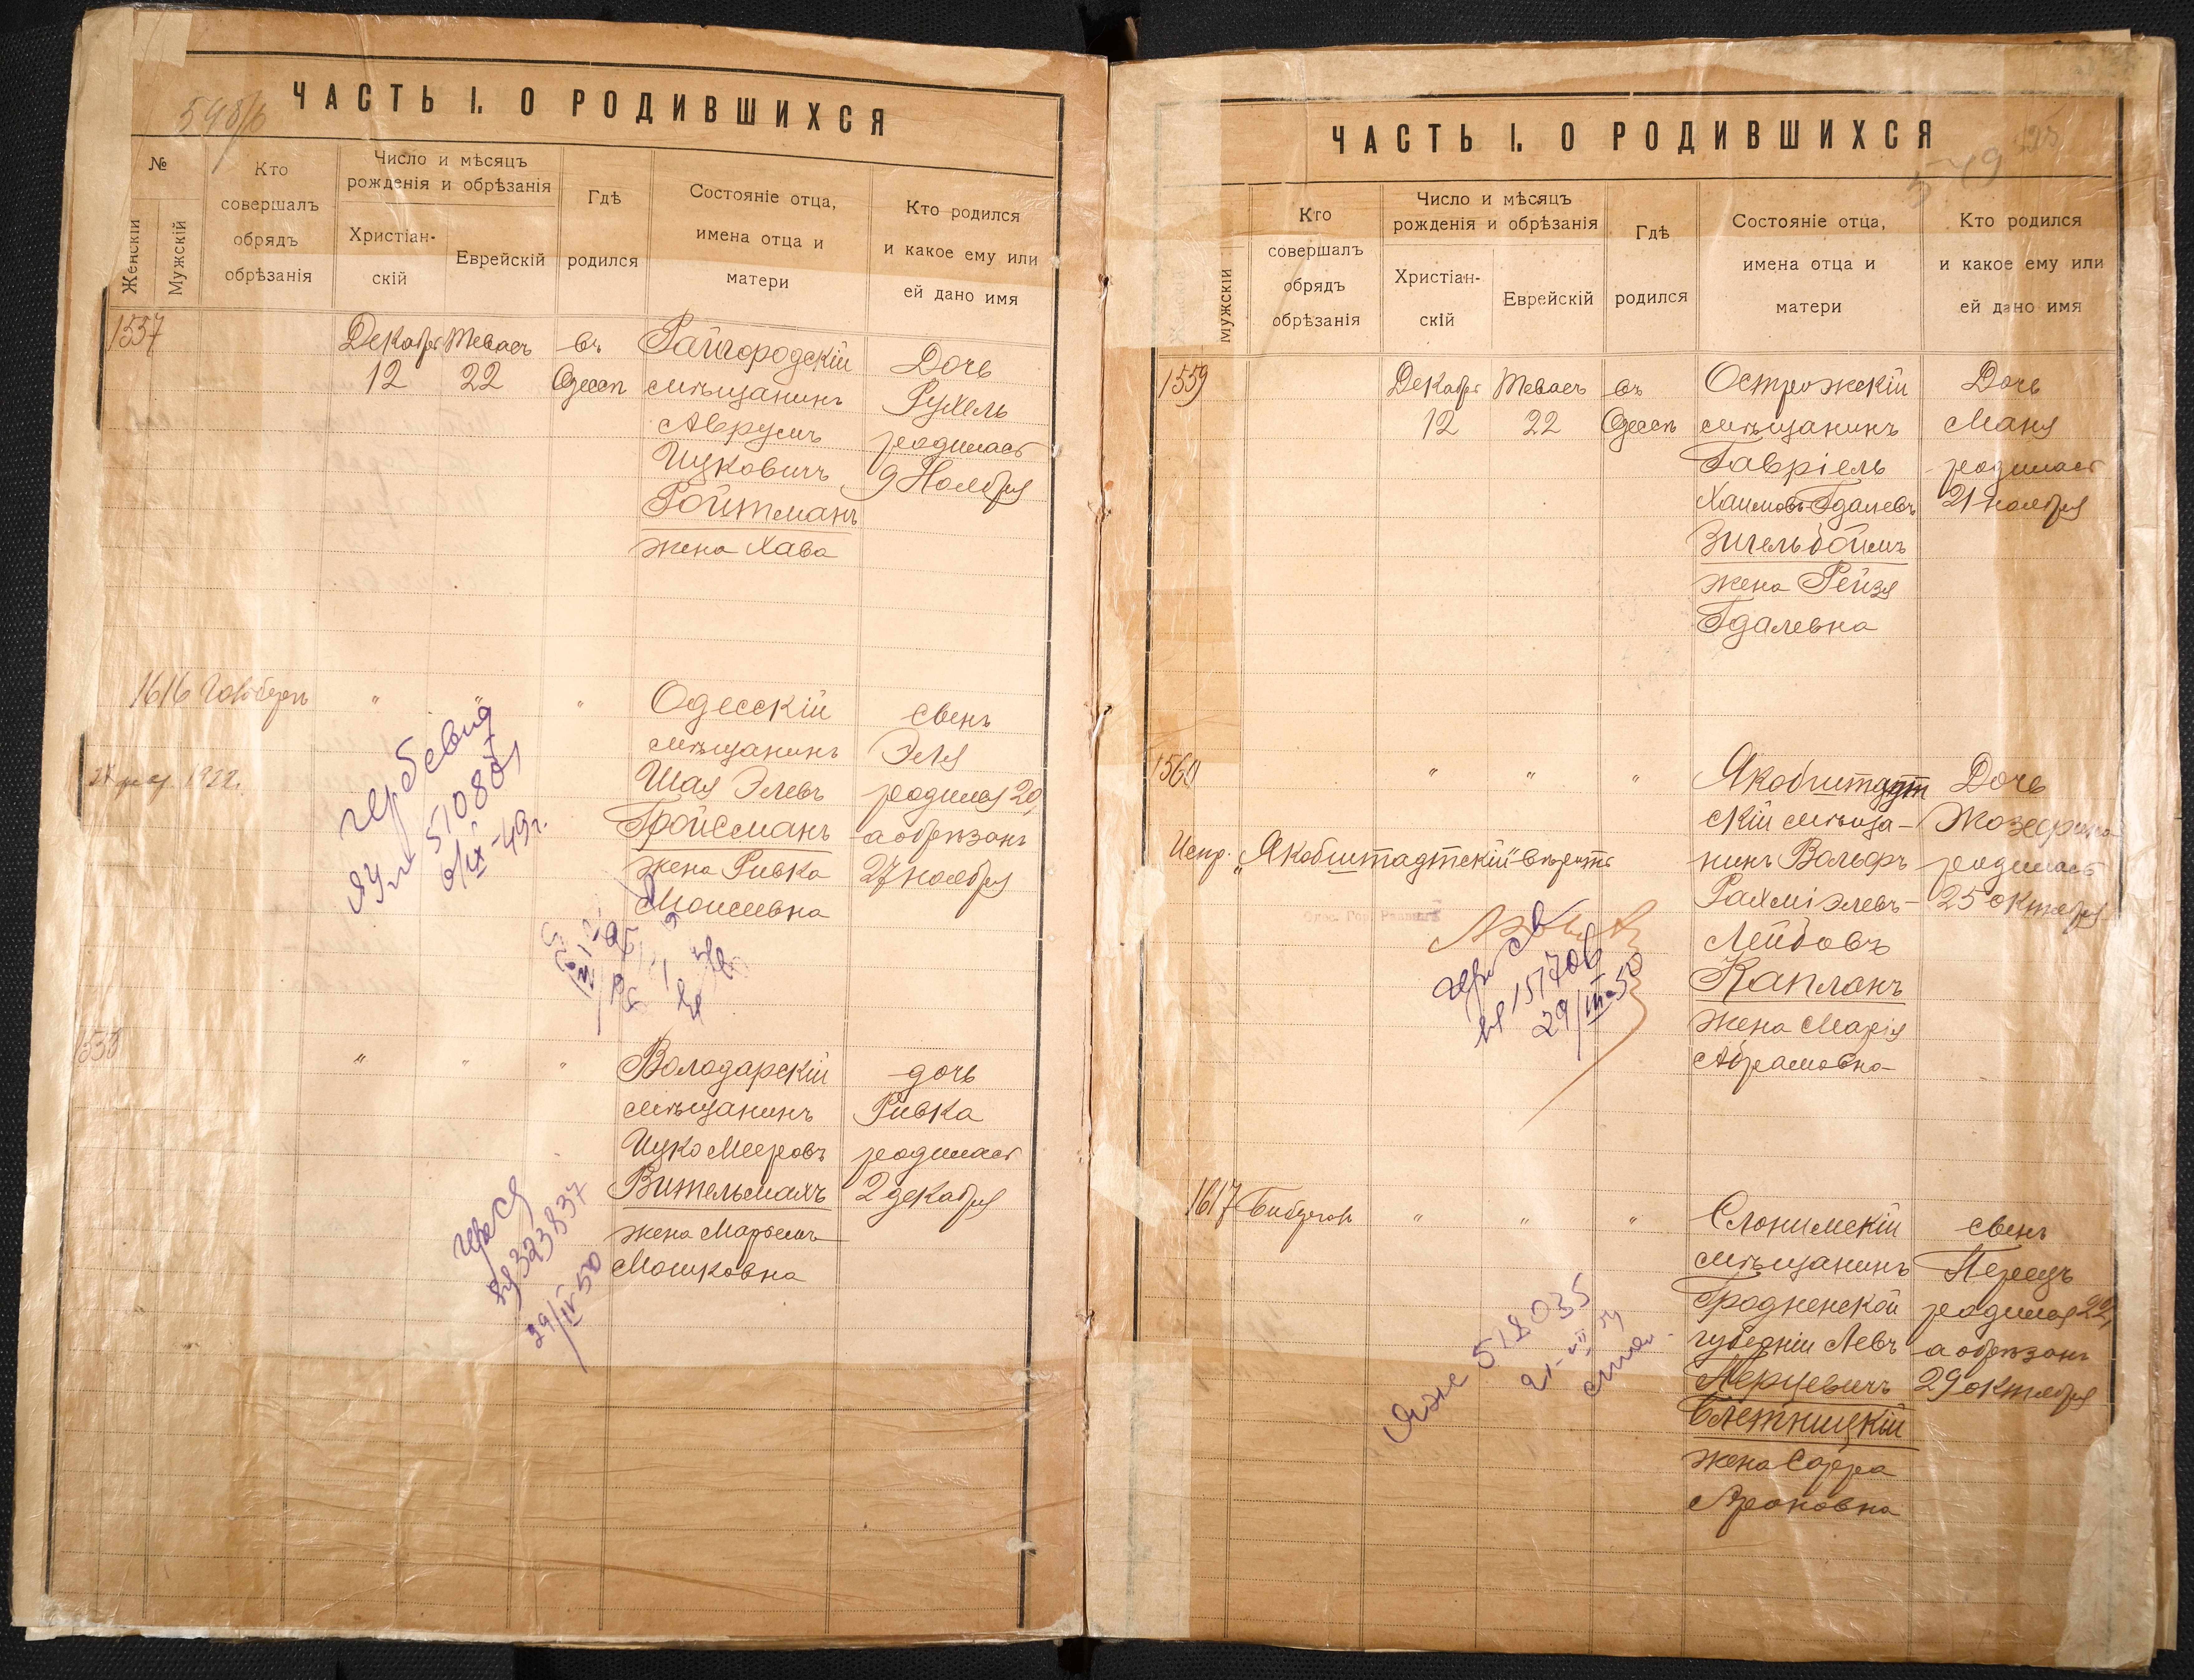 ЧАСТЬ I. О РОДИВШИХСЯ
№
Женскій
Мужскій
Кто
совершалъ
обрядъ
обрѣзанія
Число и мѣсяцъ
рожденія и обрѣзанія
Христіан-
скій
Еврейскій
Гдѣ
родился
Состояніе отца,
имена отца и
матери
Кто родился
и какое ему или
ей дано имя
1557
Декабря
12
Теваесъ
22
въ
Одессѣ
Райгородскій
мѣщанинъ
Аврумъ
Ицковичъ
Ройтманъ
жена Хава
Дочь
Рухель
родилась
9 Ноября
1616
"
"
"
Одесскій
мѣщанинъ
Шая Элевъ
Гройсманъ
жена Ривка
Моисеевна
сынъ
Эля
родился 20,
а обрѣзанъ
27 ноября
1922.
510807
6/IX-49г.
1558
"
"
"
Володарскій
мѣщанинъ
Ицко Мееровъ
Вительмахъ
жена Марьемъ
Мошковна
дочь
Ривка
родилась
2 декабря
323837
29/IV 50
ЧАСТЬ I. О РОДИВШИХСЯ
Мужскій
Кто
совершалъ
обрядъ
обрѣзанія
Число и мѣсяцъ
рожденія и обрѣзанія
Христіан-
скій
Еврейскій
Гдѣ
родился
Состояніе отца,
имена отца и
матери
Кто родился
и какое ему или
ей дано имя
1559
Декабря
12
Теваесъ
22
въ
Одессѣ
Острожскій
мѣщанинъ
Гавріель
Хаимовъ-Гдалевъ
Зигельбоймъ
жена Рейзя
Гдалевна
Дочь
Маня
родилась
21 ноября
1560
"
"
"
Якобштадт
скій мѣща-
нинъ Вольфъ
Рахміэлевъ-
Лейбовъ
Капланъ
жена Марія
Абрамовна
Дочь
Жозефина
родилась
25 октября
Испр. „Якобштадтскій" вѣрить
151706
29/III-50
1617
"
"
"
Слонимскій
мѣщанинъ
Гродненской
губерніи Левъ
Перцевичъ
Слетницкій
жена Сарра
Ароновна
сынъ
Перецъ
родился 22,
а обрѣзанъ
29 октября
518035